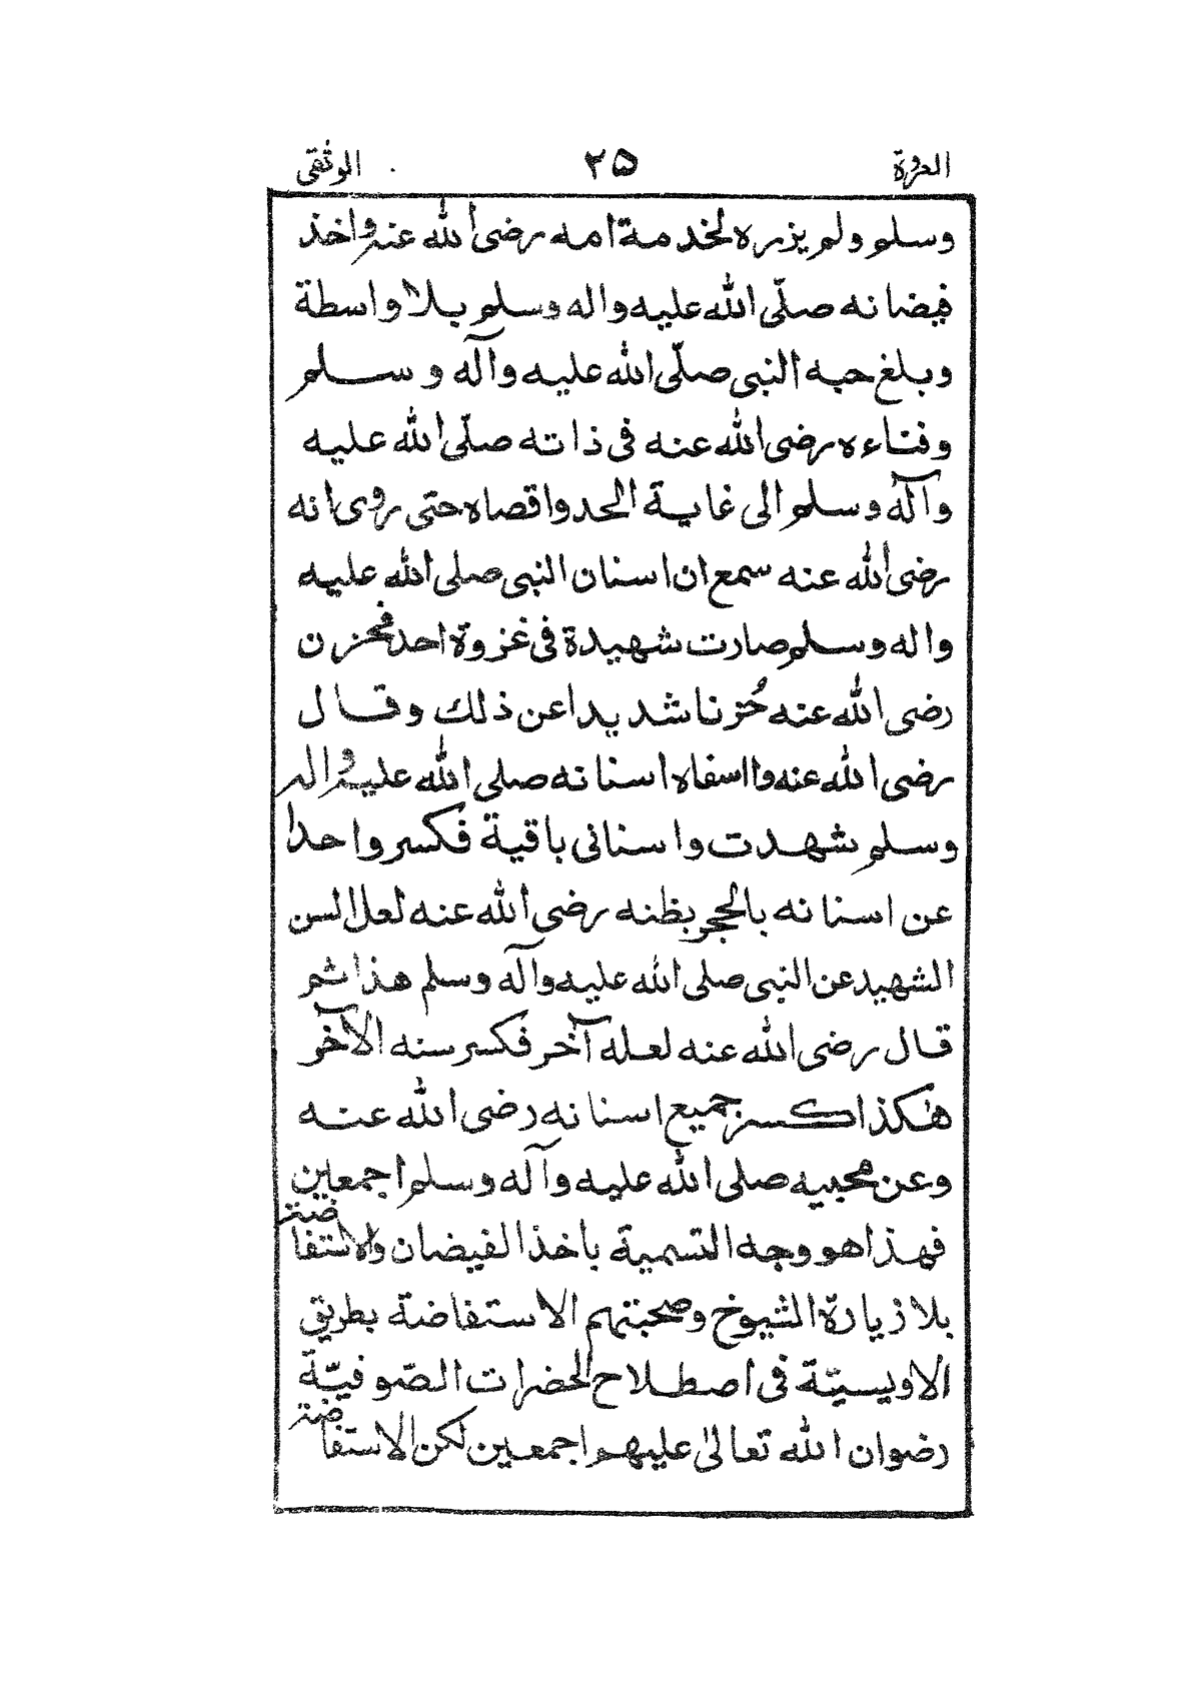 العروة ٢٥ الوثقى
وسلم ولم يزره لخدمة امه رضى الله عنه واخذ
فيضانه صلّى الله عليه واله وسلم بلا واسطة
وبلغ حبه النبى صلّى الله عليه وآله وسلم
وفناءه رضى الله عنه فى ذاته صلّى الله عليه
وآله وسلم الى غاية الحد واقصاه حتى روى انه
رضى الله عنه سمع ان اسنان النبى صلى الله عليه
واله وسلم صارت شهيدة فى غزوة احد فحزن
رضى الله عنه حُزنا شديدا عن ذلك وقال
رضى الله عنه وااسفاه اسنانه صلى الله عليه واله
وسلم شهدت واسنانى باقية فكسر واحدا
عن اسنانه بالحجر بظنه رضى الله عنه لعل السن
الشهيد عن النبى صلى الله عليه وآله وسلم هذا ثم
قال رضى الله عنه لعله آخر فكسر سنه الآخر
هٰكذا كسر جميع اسنانه رضى الله عنه
وعن محبيه صلى الله عليه وآله وسلم اجمعين
فهذا هو وجه التسمية باخذ الفيضان والاستفاضة
بلا زيارة الشيوخ وصحبتهم الاستفاضة بطريق
الاويسيّة فى اصطلاح الحضرات الصّوفيّة
رضوان الله تعالىٰ عليهم اجمعين لكن الاستفاضة